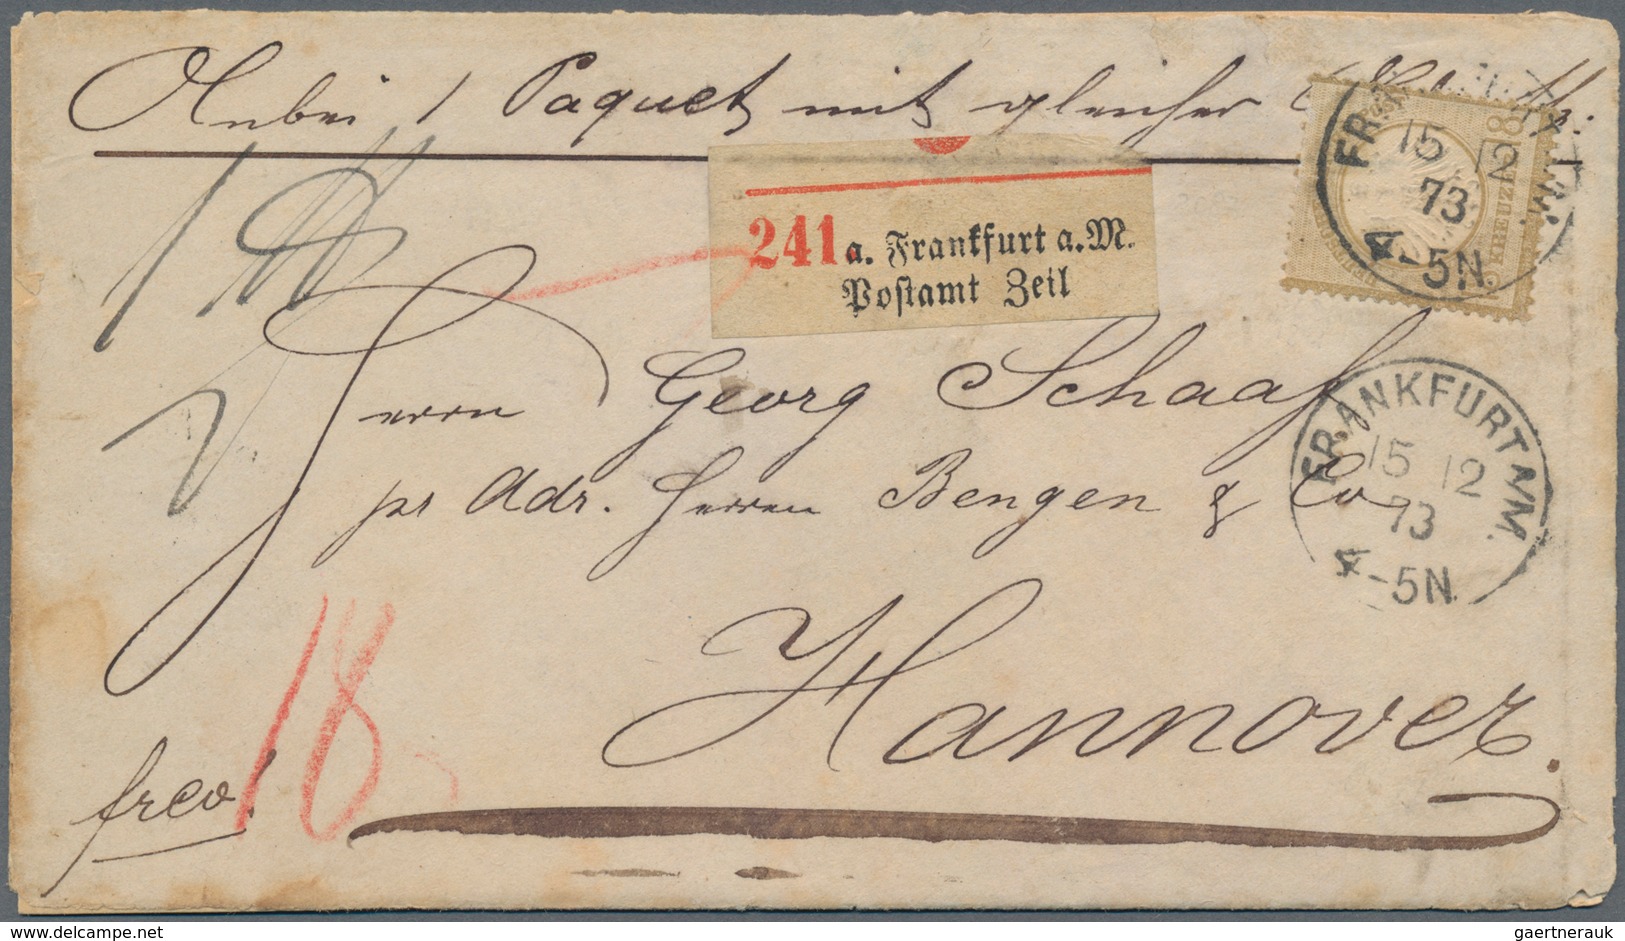 Anbei 1 Paquet mit gleicher
FR
15 12
73
4-5N.
18 KREUZER 18
241 a. Frankfurt a. M.
Postamt Zeil
Herrn Georg Schaaf
pr Adr. Herren Bengen & Co
FRANKFURT A/M.
15 12
73
4-5N.
Hannover.
frco!
18
delcampe.net
gaertnerauk